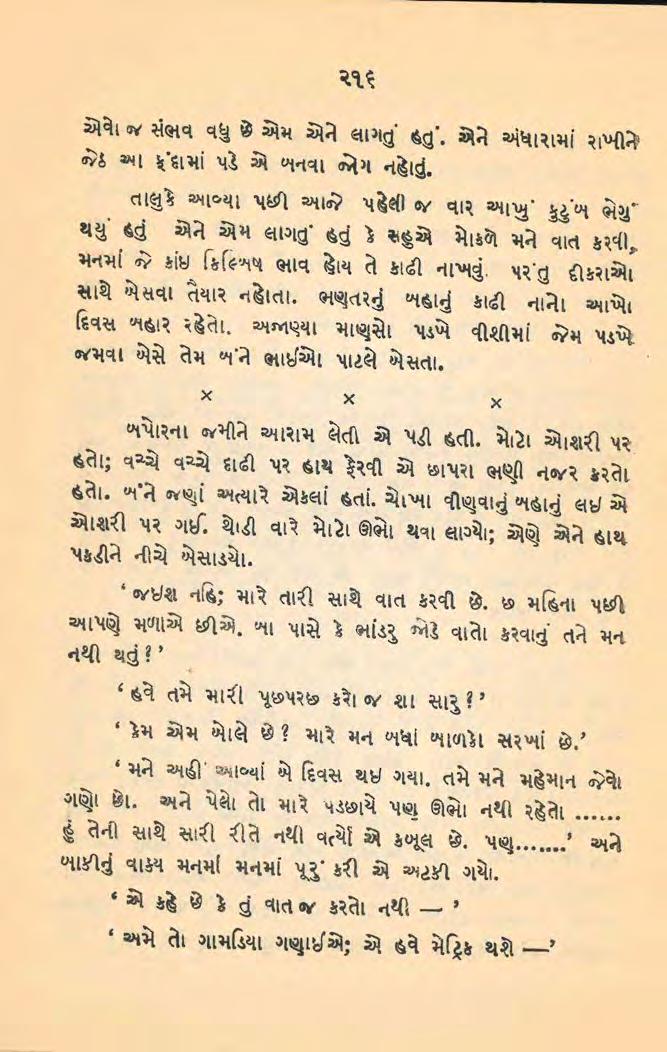 ૨૧૬
એવો જ સંભવ વધુ છે એમ એને લાગતું હતું. એને અંધારામાં રાખીને
જેઠ આ ફંદામાં પડે એ બનવા જોગ નહોતું.
તાલુકે આવ્યા પછી આજે પહેલી જ વાર આખું કુટુંબ ભેગું
થયું હતું એને એમ લાગતું હતું કે સહુએ મોકળે મને વાત કરવી,
મનમાં જે કાંઇ કિલ્બિષ ભાવ હોય તે કાઢી નાખવું. પરંતુ દીકરાઓ
સાથે બેસવા તૈયાર નહોતા. ભણતરનું બહાનું કાઢી નાનો આખો
દિવસ બહાર રહેતો. અજાણ્યા માણસો પડખે વીશીમાં જેમ પડખે
જમવા બેસે તેમ બંને ભાઈઓ પાટલે બેસતા.
× × ×
બપોરના જમીને આરામ લેતી એ પડી હતી. મોટો ઓશરી પર
હતો; વચ્ચે વચ્ચે દાઢી પર હાથ ફેરવી એ છાપરા ભણી નજર કરતો
હતો. બંને જણાં અત્યારે એકલાં હતાં. ચોખા વીણવાનું બહાનું લઇ એ
ઓશરી પર ગઈ. થોડી વારે મોટો ઊભો થવા લાગ્યો; એણે એને હાથ
પકડીને નીચે બેસાડયો.
‘જઇશ નહિ; મારે તારી સાથે વાત કરવી છે. છ મહિના પછી
આપણે મળાએ છીએ. બા પાસે કે ભાંડરુ જોડે વાતો કરવાનું તને મન
નથી થતું?’
‘હવે તમે મારી પૂછપરછ કરો જ શા સારુ?’
‘કેમ એમ બોલે છે? મારે મન બધાં બાળકો સરખાં છે.’
‘મને અહીં આવ્યાં બે દિવસ થઇ ગયા. તમે મને મહેમાન જેવો
ગણો છો. અને પેલો તો મારે પડછાયે પણ ઊભો નથી રહેતો ......
હું તેની સાથે સારી રીતે નથી વર્ત્યો એ કબૂલ છે. પણ.......’ અને
બાકીનું વાક્ય મનમાં મનમાં પૂરું કરી એ અટકી ગયો.
‘એ કહે છે કે તું વાત જ કરતો નથી — ’
‘અમે તો ગામડિયા ગણાઈએ; એ હવે મેટ્રિક થશે —’